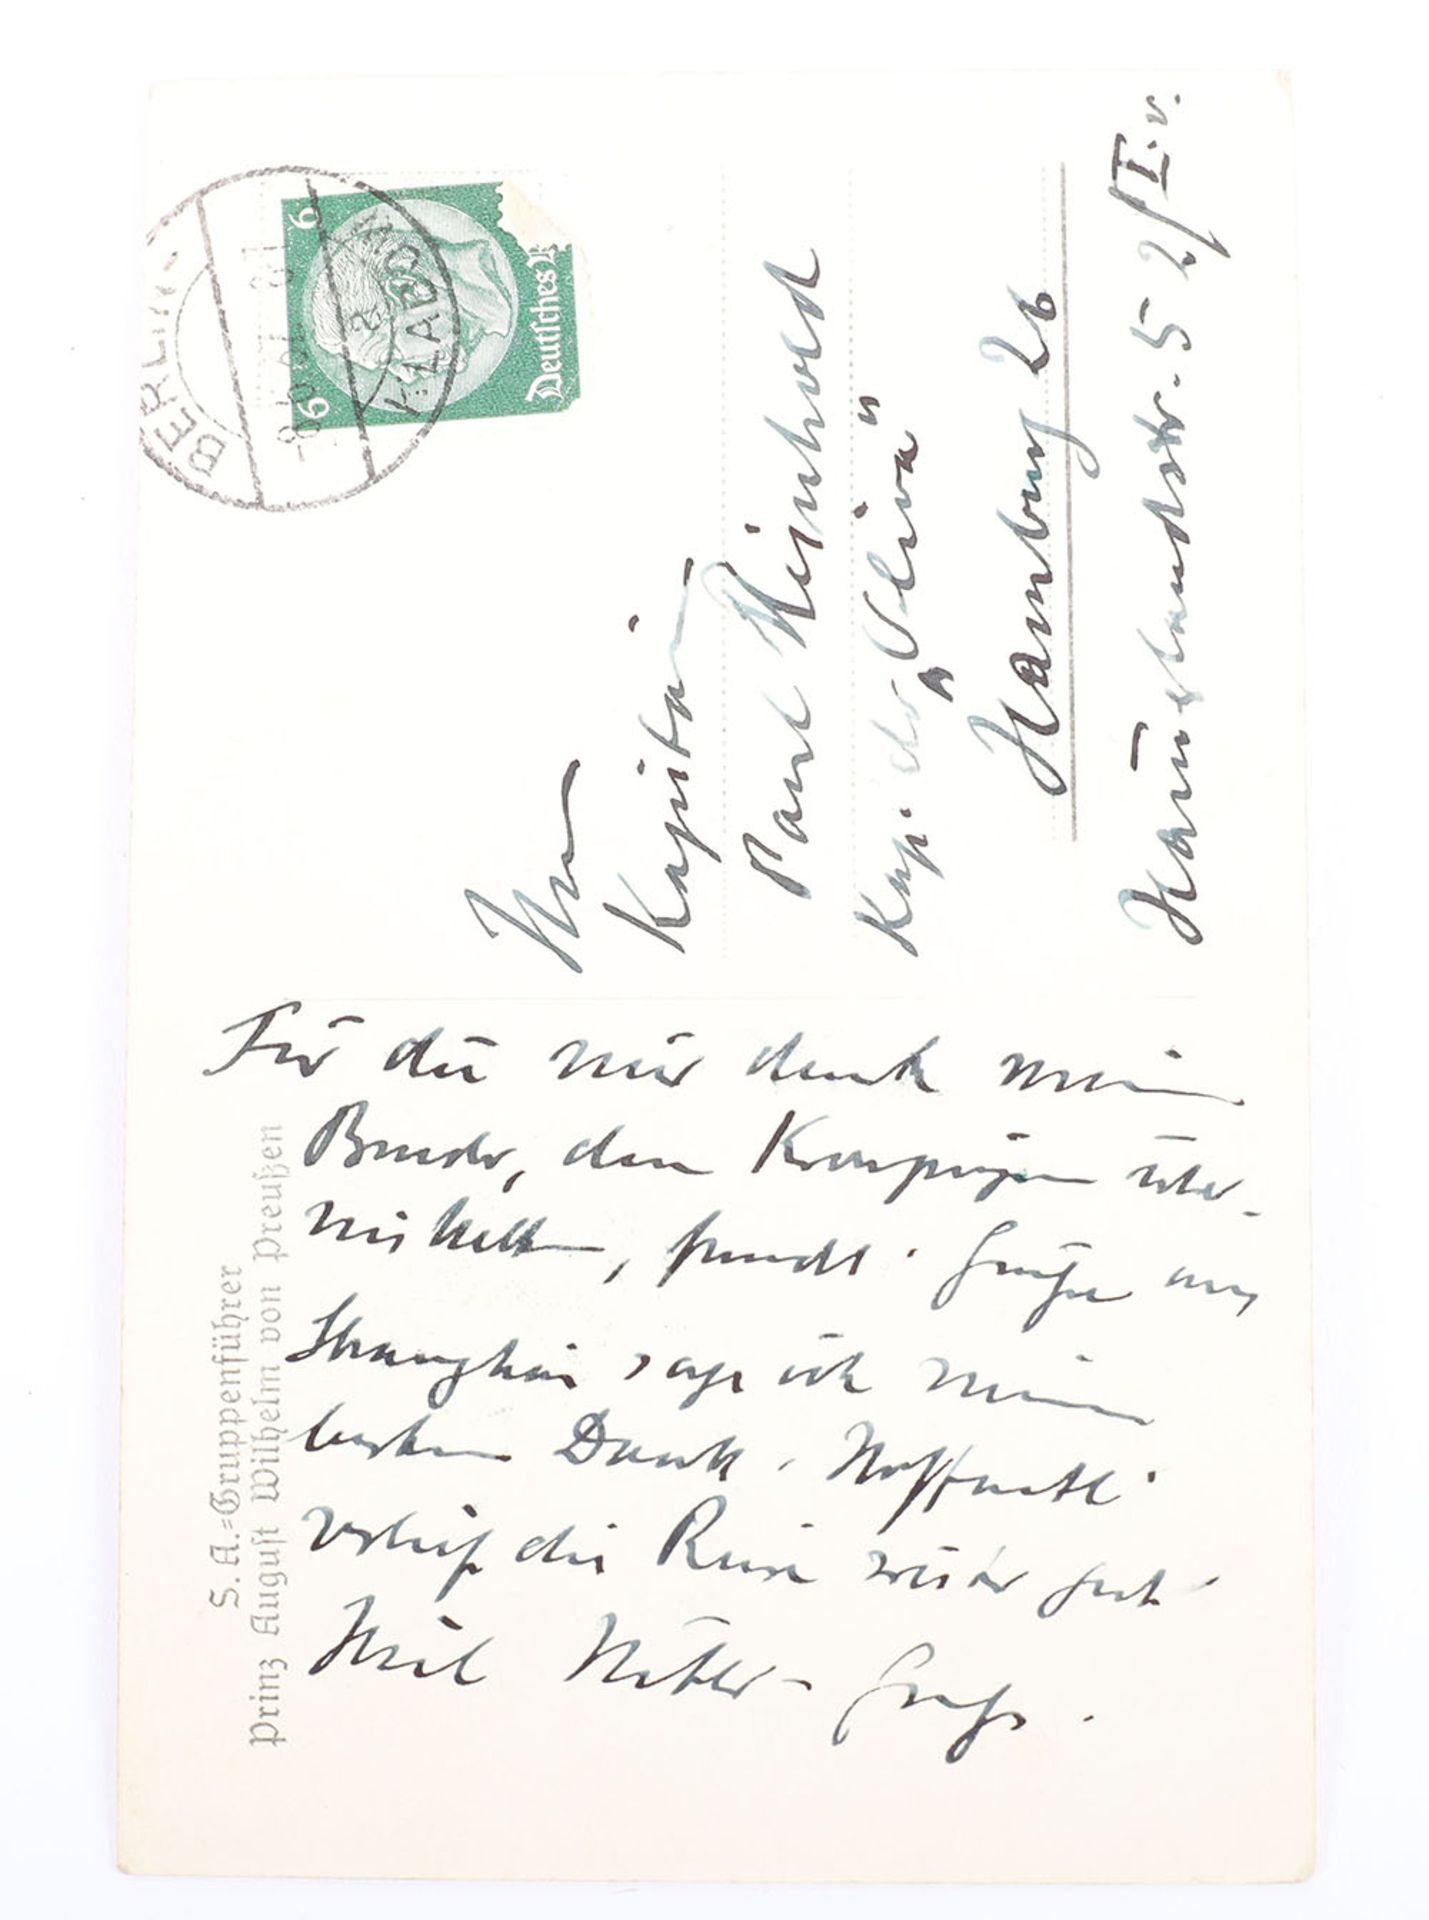 S.A.=Gruppenführer
Prinz August Wilhelm von Preußen
Für die mir durch meinen
Bruder, den Kronprinzen über-
mittelten, freundl. Grüße aus
Shanghai sage ich meinen
besten Dank. Hoffentl.
verlief die Reise weiter gut.
Heil Hitler-Gruß.
BERLIN
6 6
Deutsches R
Herrn
Kapitän
Paul Reinhold
Kap. der "Oliva"
Hamburg 26
5 2/I. r.